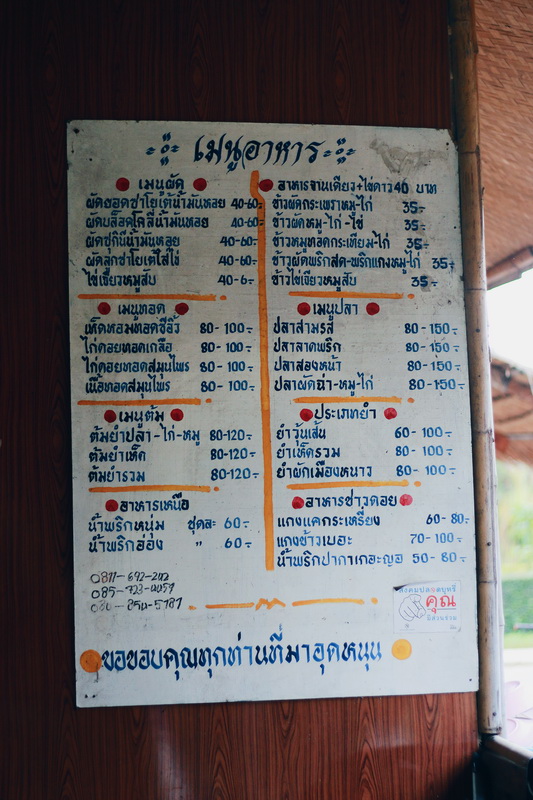 เมนูอาหาร
เมนูผัด
ผัดยอดซาโยเต้น้ำมันหอย 40-60.-
ผัดบล็อคโคลี่น้ำมันหอย 40-60.-
ผัดซูกินีน้ำมันหอย 40-60.-
ผัดลูกซาโยเต้ใส่ไข่ 40-60.-
ไข่เจียวหมูสับ 40-6.-
เมนูทอด
เห็ดหอมทอดซีอิ๊ว 80-100.-
ไก่ดอยทอดเกลือ 80-100.-
ไก่ดอยทอดสมุนไพร 80-100.-
เนื้อทอดสมุนไพร 80-100.-
เมนูต้ม
ต้มยำปลา-ไก่-หมู 80-120.-
ต้มยำเห็ด 80-120.-
ต้มยำรวม 80-120.-
อาหารเหนือ
น้ำพริกหนุ่ม ชุดละ 60.-
น้ำพริกอ่อง " 60.-
อาหารจานเดียว+ไข่ดาว 40 บาท
ข้าวผัดกระเพราหมู-ไก่ 35.-
ข้าวผัดหมู-ไก่-ไข่ 35.-
ข้าวหมูทอดกระเทียม-ไก่ 35.-
ข้าวผัดพริกสด-พริกแกงหมู-ไก่ 35.-
ข้าวไข่เจียวหมูสับ 35.-
เมนูปลา
ปลาสามรส 80-150.-
ปลาลาดพริก 80-150.-
ปลาสองหน้า 80-150.-
ปลาผัดฉ่า-หมู-ไก่ 80-150.-
ประเภทยำ
ยำวุ้นเส้น 60-100.-
ยำเห็ดรวม 80-100.-
ยำผักเมืองหนาว 80-100.-
อาหารชาวดอย
แกงแคกระเหรี่ยง 60-80.-
แกงข้าวเบอะ 70-100.-
น้ำพริกปากาเกอะญอ 50-80.-
0811-692-202
ขอขอบคุณทุกท่านที่มาอุดหนุน
สังคมปลอดบุหรี่
คุณ
มีส่วนร่วม